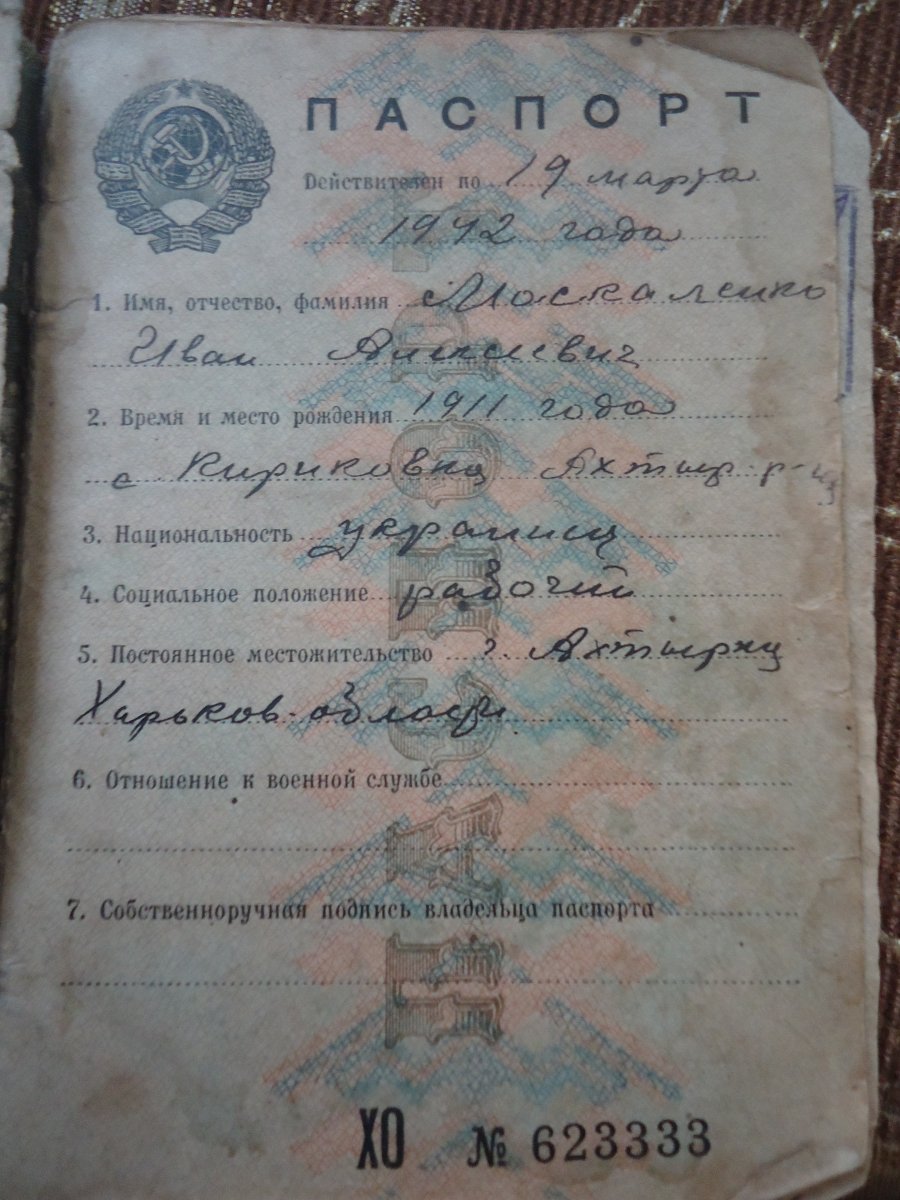 ПАСПОРТ
Действителен по 19 марта
1942 года
1. Имя, отчество, фамилия Москаленко
Иван Алексеевич
2. Время и место рождения 1911 года
с Кириковка Ахтыр. р-на
3. Национальность украинец
4. Социальное положение рабочий
5. Постоянное местожительство г. Ахтырка
Харьков. области
6. Отношение к военной службе
7. Собственноручная подпись владельца паспорта
ХО № 623333
ПАСПОРТ